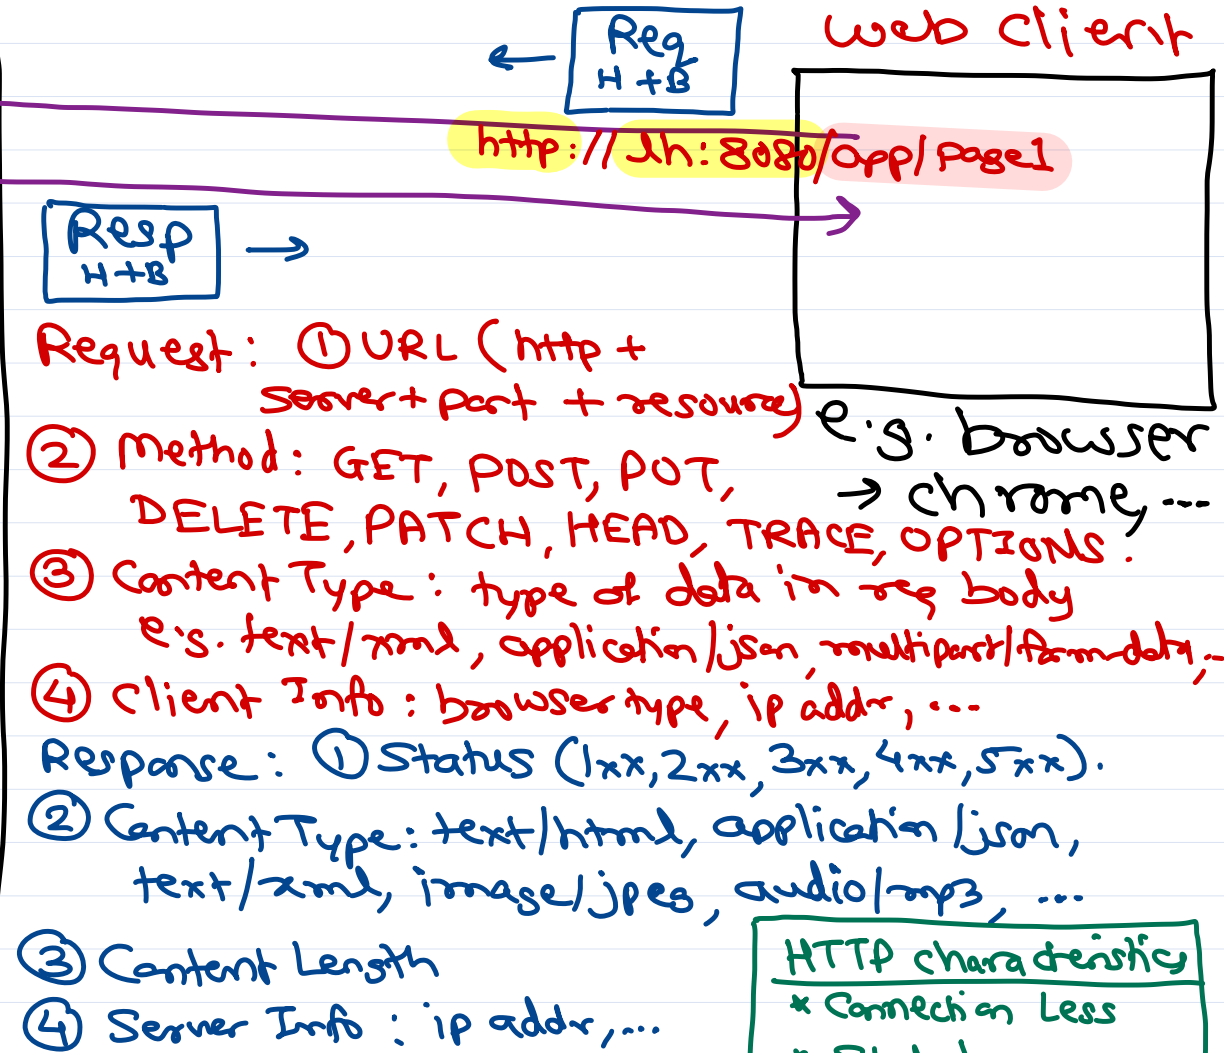 web client
Req
H+B
http://lh:8080/app/page1
Resp
H+B
Request: ① URL (http +
server + port + resource)
e.g. browser
→ chrome, ...
② Method: GET, POST, PUT,
DELETE, PATCH, HEAD, TRACE, OPTIONS.
③ Content Type: type of data in req body
e.g. text/xml, application/json, multipart/form-data, ...
④ Client Info: browser type, ip addr, ...
Response: ① Status (1xx, 2xx, 3xx, 4xx, 5xx).
② Content Type: text/html, application/json,
text/xml, image/jpeg, audio/mp3, ...
③ Content Length
④ Server Info: ip addr, ...
HTTP characteristics
* Connection Less